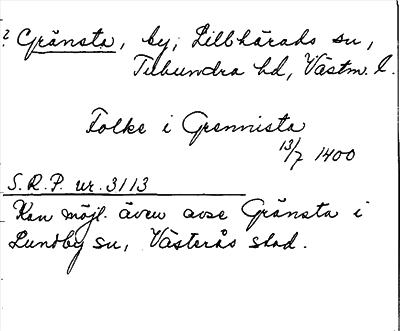 ? Gränsta, by, Lillhärads sn,
Tuhundra hd, Västm. l.
Folke i Grennista
13/7 1400
S.R.P. nr. 3113
Kan möjl. även avse Gränsta i
Lundby sn, Västerås stad.